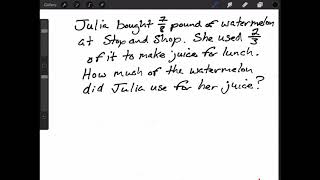 Julia bought 7/8 pound of watermelon
at Stop and Shop. She used 2/3
of it to make juice for lunch.
How much of the watermelon
did Julia use for her juice?